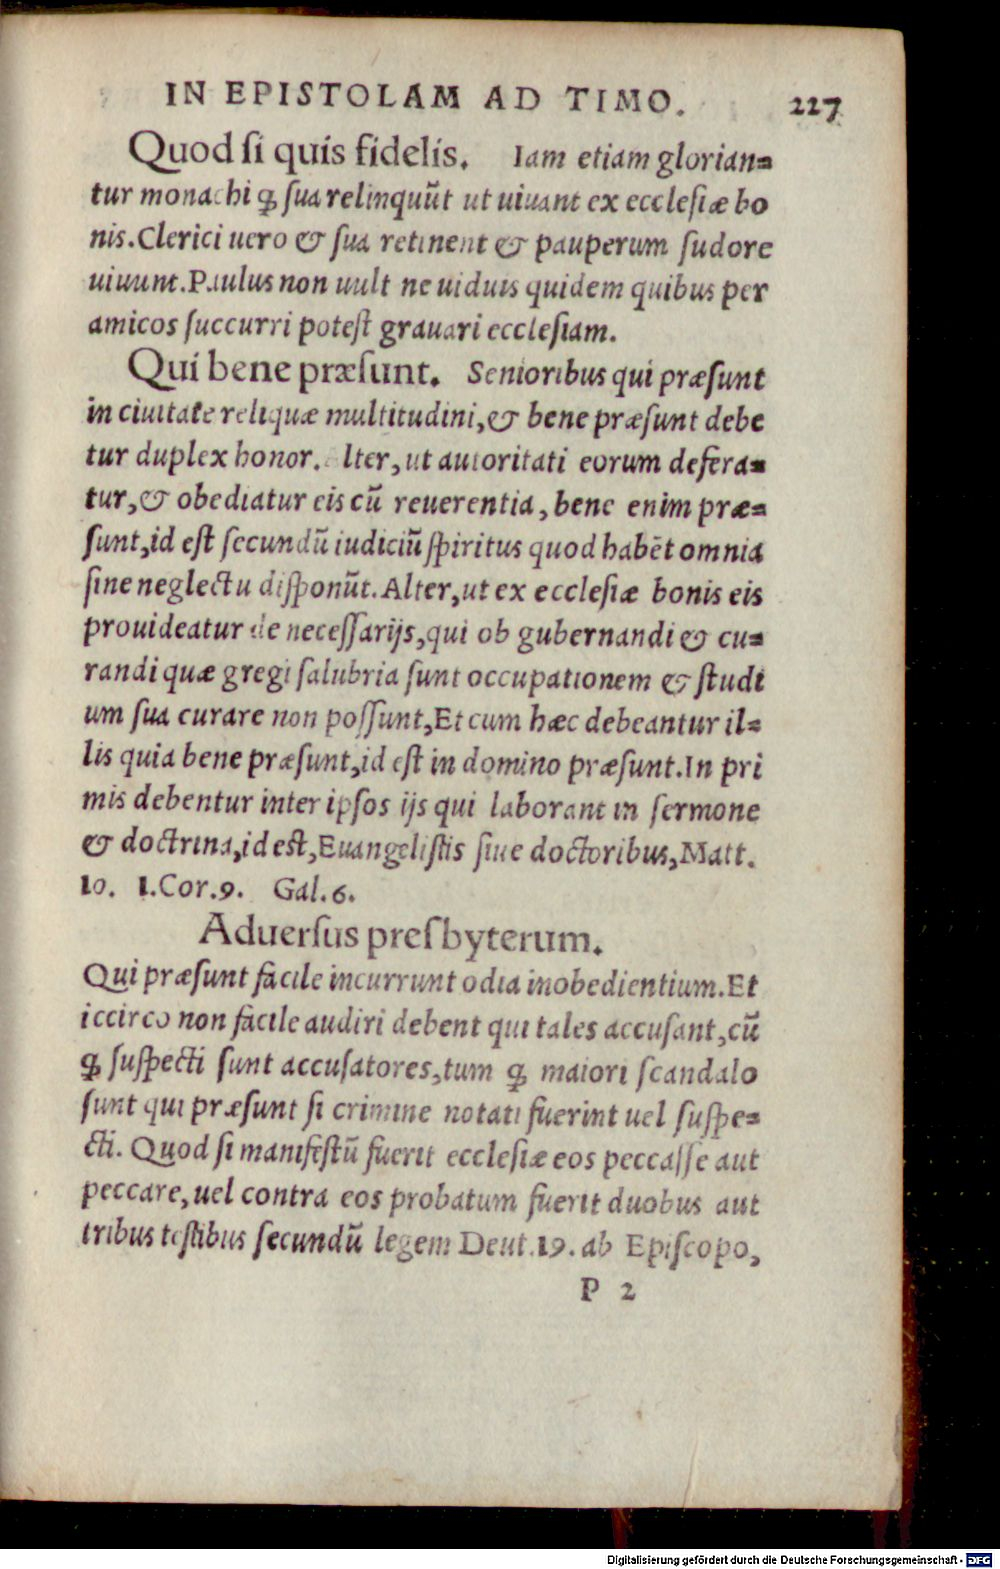 IN EPISTOLAM AD TIMO. 227
Quod si quis fidelis. Iam etiam glorian=
tur monachi ꝙ sua relinquūt ut uiuant ex ecclesiæ bo
nis. Clerici uero & sua retinent & pauperum sudore
uiuunt. Paulus non uult ne uiduis quidem quibus per
amicos succurri potest grauari ecclesiam.
Qui bene præsunt. Senioribus qui præsunt
in ciuitate reliquæ multitudini, & bene præsunt debe
tur duplex honor. Alter, ut autoritati eorum defera=
tur, & obediatur eis cū reuerentia, bene enim præ=
sunt, id est secundū iudiciū spiritus quod habēt omnia
sine neglectu disponūt. Alter, ut ex ecclesiæ bonis eis
prouideatur de necessarijs, qui ob gubernandi & cu=
randi quæ gregi salubria sunt occupationem & studi
um sua curare non possunt, Et cum hæc debeantur il=
lis quia bene præsunt, id est in domino præsunt. In pri
mis debentur inter ipsos ijs qui laborant in sermone
& doctrina, id est, Euangelistis siue doctoribus, Matt.
10. 1. Cor. 9. Gal. 6.
Aduersus presbyterum.
Qui præsunt facile incurrunt odia inobedientium. Et
iccirco non facile audiri debent qui tales accusant, cū
ꝙ suspecti sunt accusatores, tum ꝙ maiori scandalo
sunt qui præsunt si crimine notati fuerint uel suspe=
cti. Quod si manifestū fuerit ecclesiæ eos peccasse aut
peccare, uel contra eos probatum fuerit duobus aut
tribus testibus secundū legem Deut. 19. ab Episcopo,
P 2
Digitalisierung gefördert durch die Deutsche Forschungsgemeinschaft - DFG